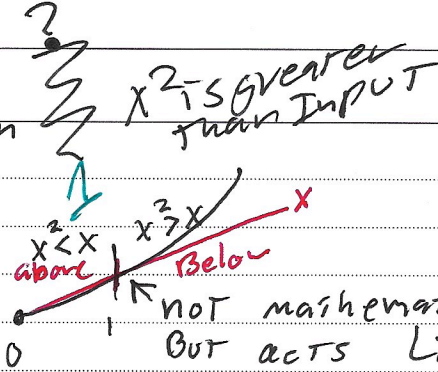 ?
x² is Greater
than INPUT
n
1
x² < x
x² > x
x
above
Below
not mathema
0
1
But acts Li